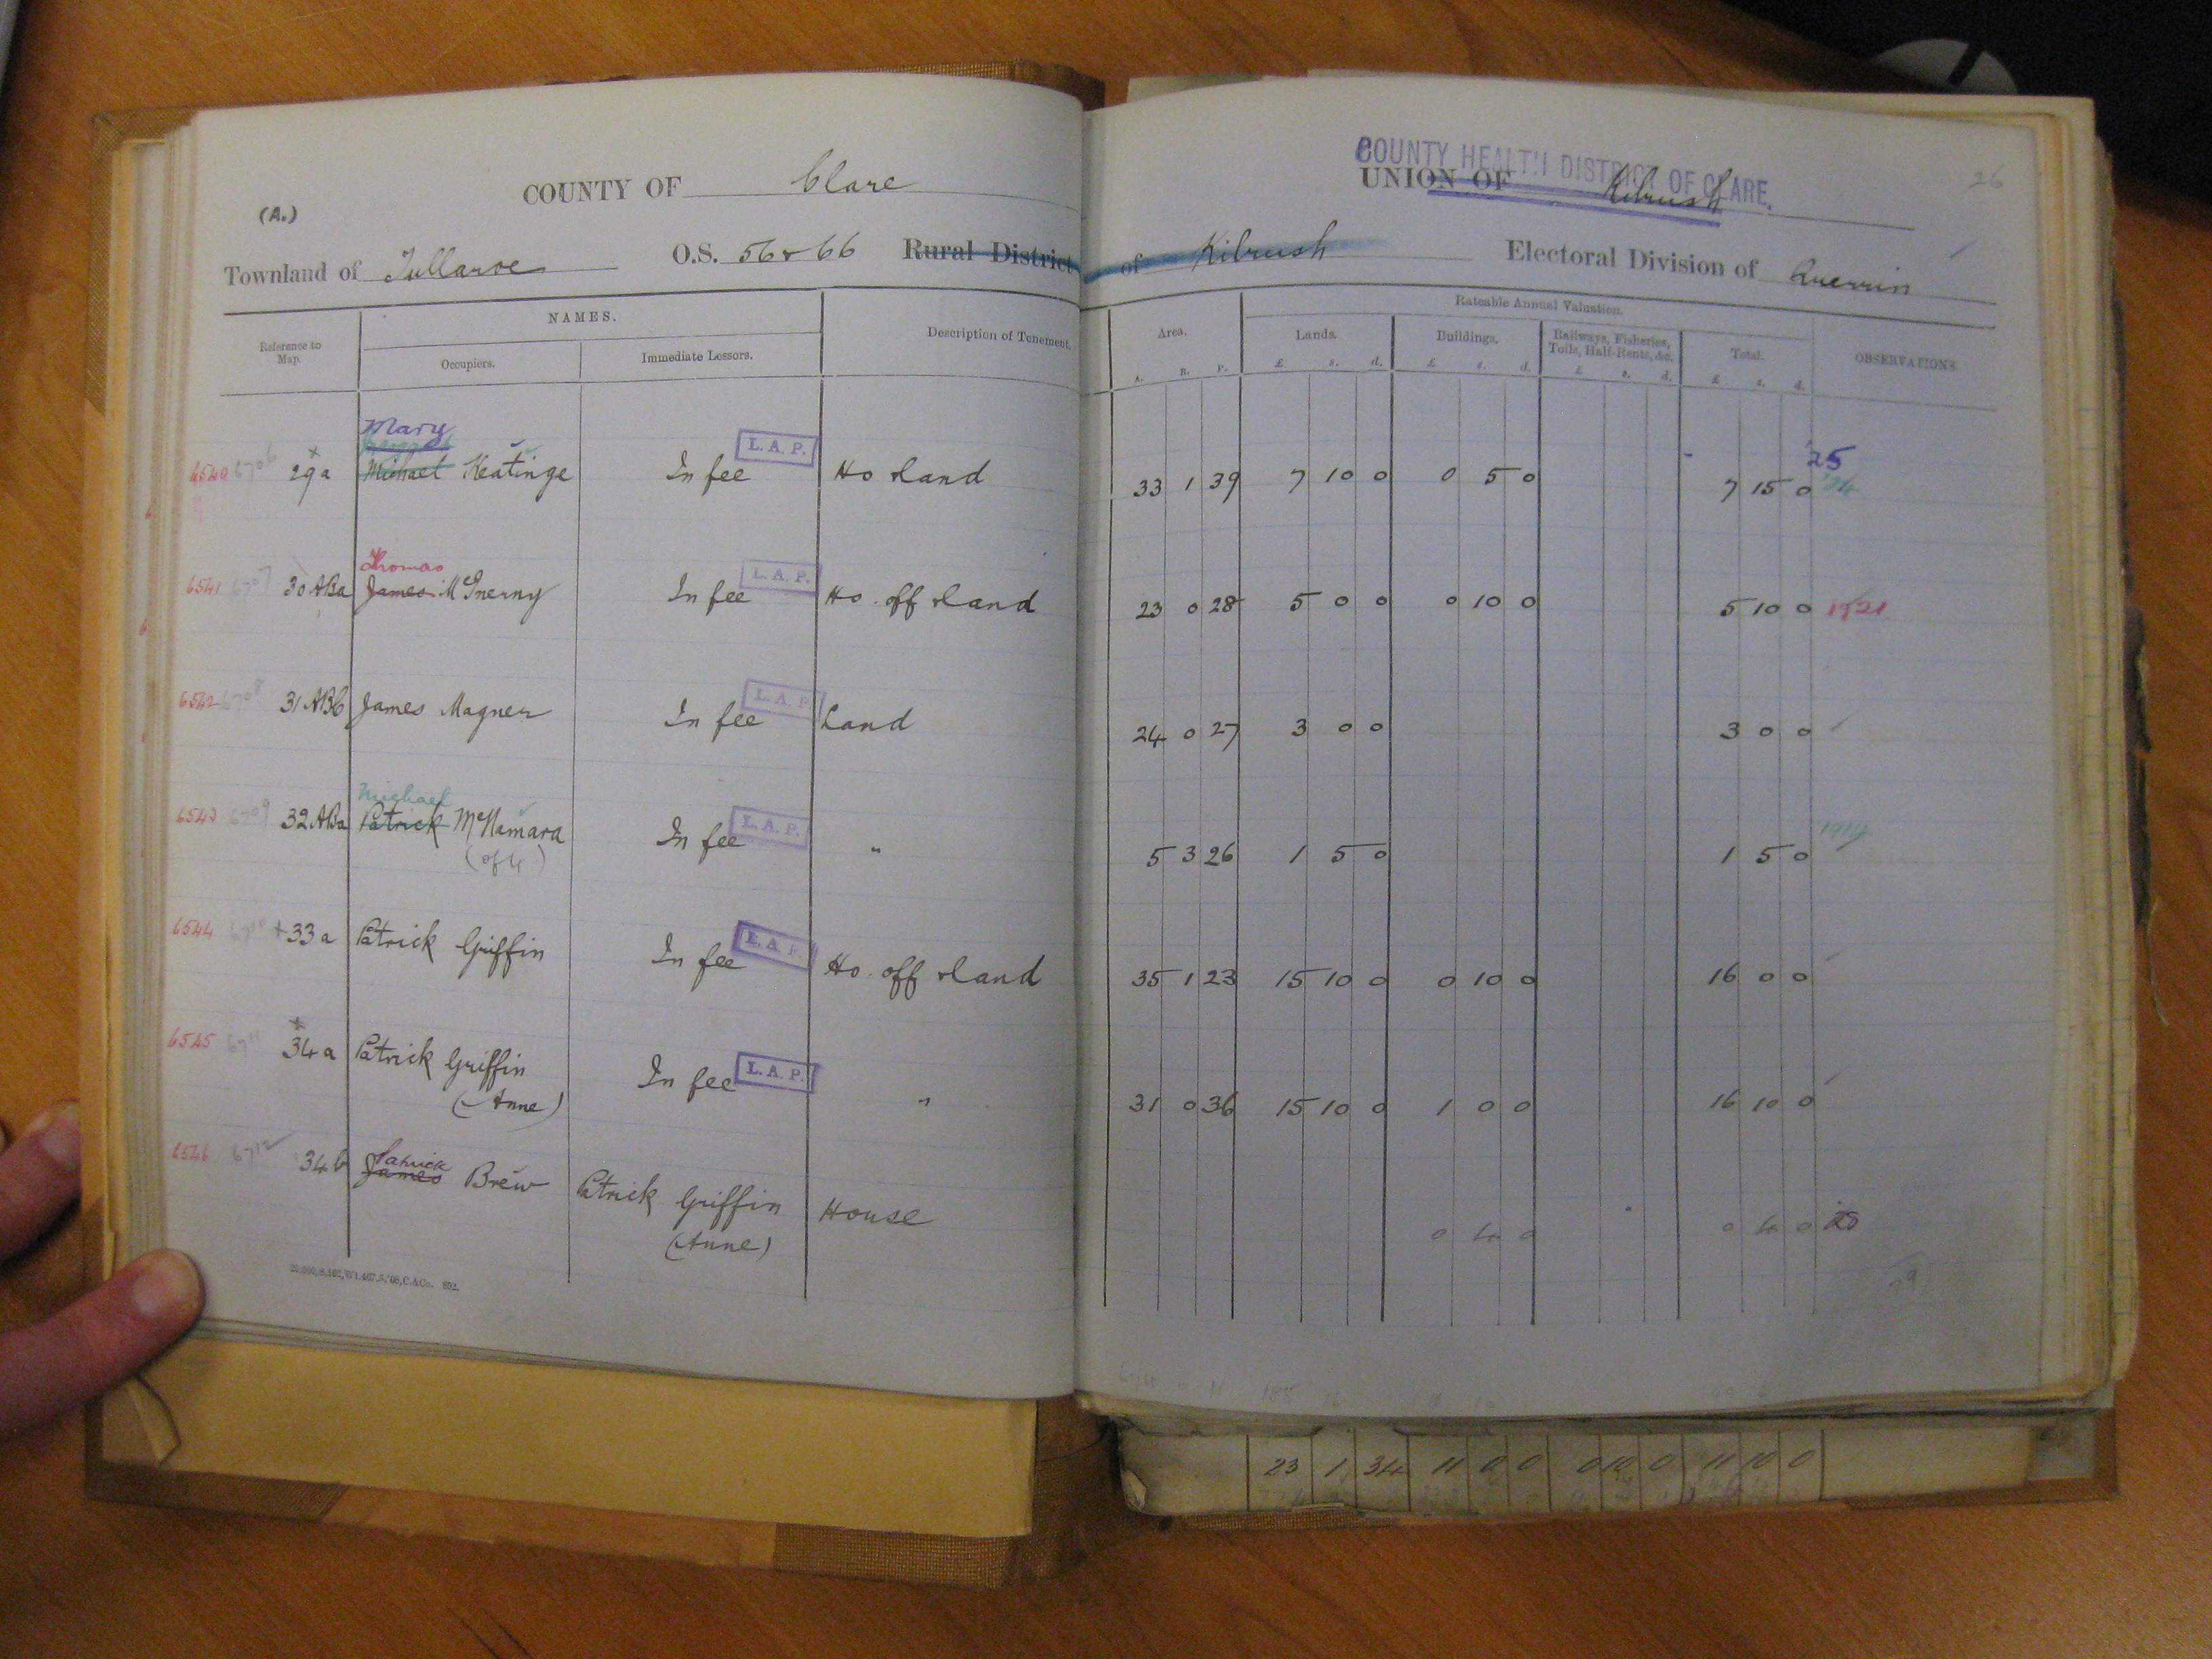 COUNTY HEALTH DISTRICT OF CLARE.
COUNTY OF Clare
UNION OF Kilrush
26
(A.)
Townland of Tullaroe O.S. 56 & 66 Rural District of Kilrush Electoral Division of Querrin
Reference to Map. NAMES. Description of Tenement. Area. Rateable Annual Valuation. OBSERVATIONS
Occupiers. Immediate Lessors. Lands. Buildings. Railways, Fisheries, Tolls, Half-Rents, &c. Total.
A. R. P. £ s. d. £ s. d. £ s. d. £ s. d.
Mary
6540 6706 29a Michael Keatinge In fee L. A. P. Ho & land 33 1 39 7 10 0 0 5 0 7 15 0 '25
Thomas
6541 6707 30 ABa James McInerny In fee L. A. P. Ho. off & land 23 0 28 5 0 0 0 10 0 5 10 0 1921
6542 6708 31 ABb James Magner In fee L. A. P. Land 24 0 27 3 0 0 3 0 0
Michael
6543 6709 32 ABa Patrick McNamara In fee L. A. P. " 5 3 26 1 5 0 1 5 0
(of 4)
6544 6710 33a Patrick Griffin In fee L. A. P. Ho. off & land 35 1 23 15 10 0 0 10 0 16 0 0
6545 6711 34a Patrick Griffin In fee L. A. P. " 31 0 36 15 10 0 1 0 0 16 10 0
(Anne)
Patrick
6546 6712 34b James Brew Patrick Griffin House 0 4 0 0 4 0
(Anne)
23 1 34 11 0 0 0 10 0 11 10 0